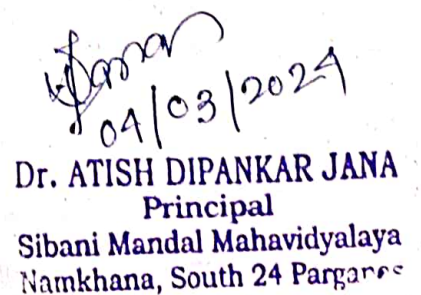 04/03/2024
Dr. ATISH DIPANKAR JANA
Principal
Sibani Mandal Mahavidyalaya
Namkhana, South 24 Parganas